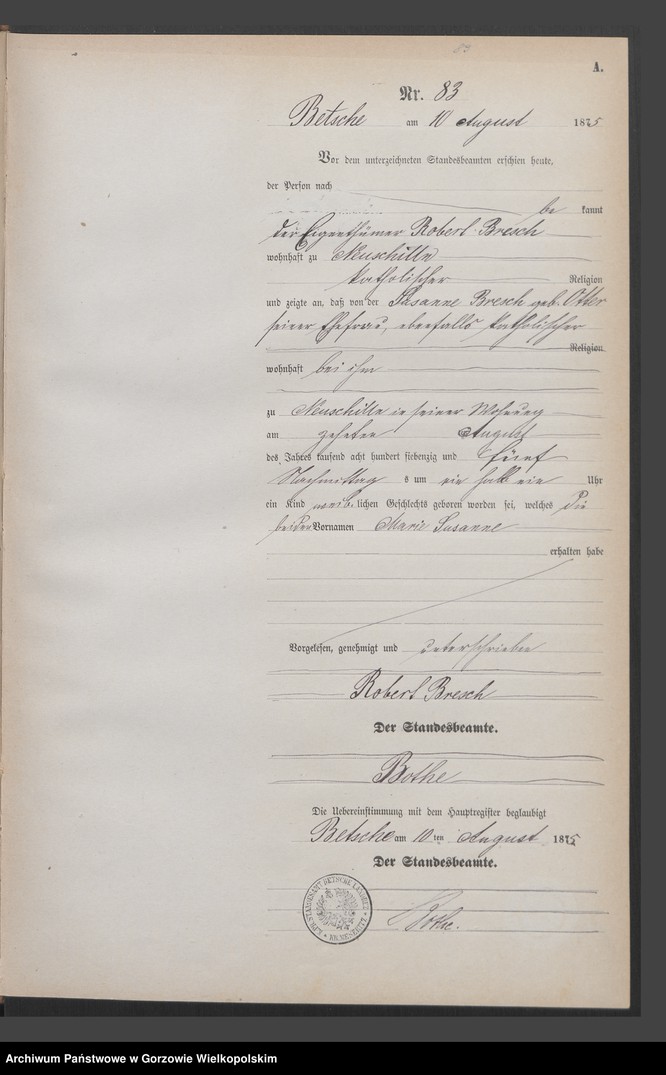 83
A.
Nr. 83
Betsche am 10 August 1875
Vor dem unterzeichneten Standesbeamten erschien heute,
der Person nach
be kannt
der Eigenthümer Robert Bresch
wohnhaft zu Neuschilln
katholischer Religion
und zeigte an, daß von der Susanne Bresch geb. Otter
seiner Ehefrau, ebenfalls katholischer
Religion
wohnhaft bei ihm
zu Neuschilln in seiner Wohnung
am zehnten August
des Jahres tausend acht hundert siebenzig und fünf
Nachmittag s um ein halb ein Uhr
ein Kind weib lichen Geschlechts geboren worden sei, welches die
beiden Vornamen Marie Susanne
erhalten habe
Vorgelesen, genehmigt und unterschrieben
Robert Bresch
Der Standesbeamte.
Bothe
Die Uebereinstimmung mit dem Hauptregister beglaubigt
Betsche am 10 ten August 1875
Der Standesbeamte.
Bothe.
K.PR. STANDESAMT BETSCHE
KR. MESERITZ
Archiwum Państwowe w Gorzowie Wielkopolskim